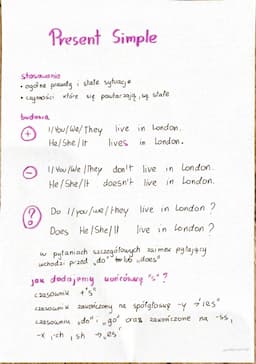 Present Simple
stosowanie
• ogólne prawdy i stałe sytuacje
• czynności które się powtarzają, są stałe
budowa
+ I/You/We/They live in London.
He/She/It lives in London.
- I/You/We/They don't live in London.
He/She/It doesn't live in London.
? Do I/you/we/they live in London?
Does He/She/It live in London?
w pytaniach szczegółowych zaimek pytający
wchodzi przed „do" lub „does"
jak dodajemy końcówkę "s"?
czasownik +"s"
czasownik zakończony na spółgłoskę -y → "ies"
czasowniki „do" i „go" oraz zakończone na -ss,
-x, -ch, -sh → „es"